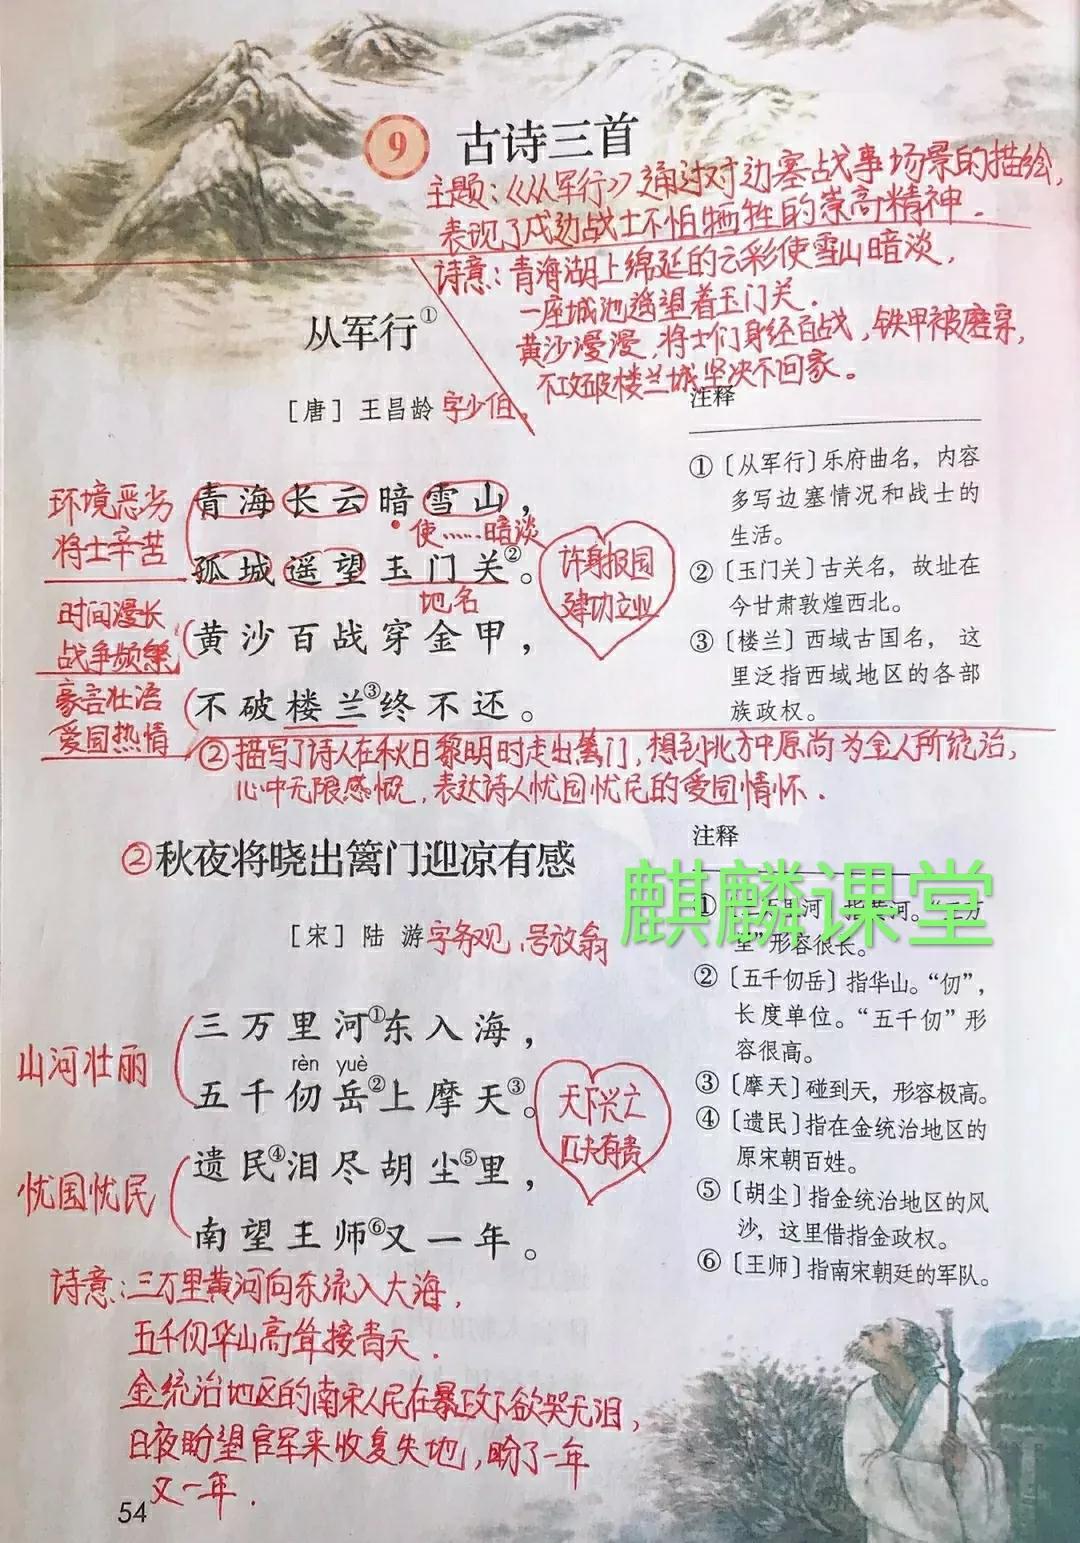 9 古诗三首
主题:《从军行》通过对边塞战事场景的描绘,
表现了戍边战士不怕牺牲的崇高精神.
诗意:青海湖上绵延的云彩使雪山暗淡,
一座城池遥望着玉门关.
黄沙漫漫,将士们身经百战,铁甲被磨穿,
不攻破楼兰城坚决不回家。
从军行①
[唐] 王昌龄 字少伯,
环境恶劣
将士辛苦
青海长云暗雪山,
使……暗淡
孤城遥望玉门关②。
地名
时间漫长
战争频繁
黄沙百战穿金甲,
豪言壮语
爱国热情
不破楼兰③终不还。
许身报国
建功立业
注释
①〔从军行〕乐府曲名,内容
多写边塞情况和战士的
生活。
②〔玉门关〕古关名,故址在
今甘肃敦煌西北。
③〔楼兰〕西域古国名,这
里泛指西域地区的各部
族政权。
②描写了诗人在秋日黎明时走出篱门,想到北方中原尚为金人所统治,
心中无限感慨,表达诗人忧国忧民的爱国情怀.
②秋夜将晓出篱门迎凉有感
[宋] 陆 游 字务观、号放翁
山河壮丽
三万里河①东入海,
rèn yuè
五千仞岳②上摩天③。
忧国忧民
遗民④泪尽胡尘⑤里,
南望王师⑥又一年。
天下兴亡
匹夫有责
注释
麒麟课堂
形容很长。
②〔五千仞岳〕指华山。“仞”,
长度单位。“五千仞”形
容很高。
③〔摩天〕碰到天,形容极高。
④〔遗民〕指在金统治地区的
原宋朝百姓。
⑤〔胡尘〕指金统治地区的风
沙,这里借指金政权。
⑥〔王师〕指南宋朝廷的军队。
诗意:三万里黄河向东流入大海,
五千仞华山高耸接青天.
金统治地区的南宋人民在暴政下欲哭无泪,
日夜盼望官军来收复失地,盼了一年
又一年.
54